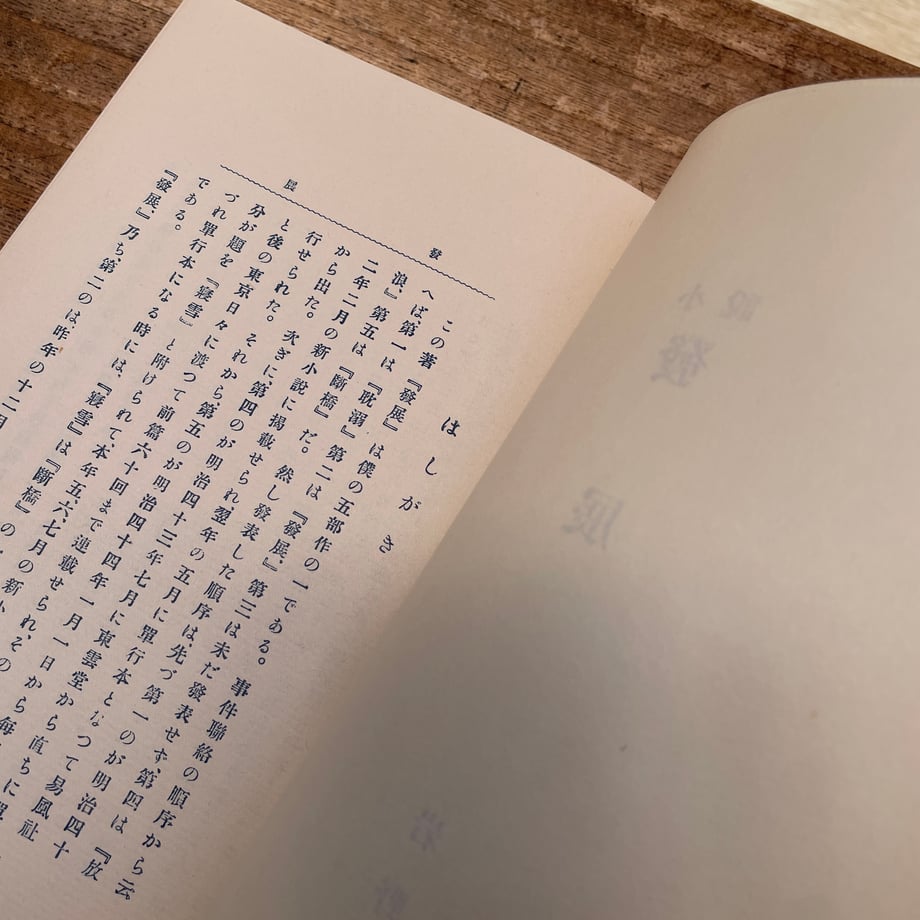 發展
はしがき
この著『發展』は僕の五部作の一である。事件聯絡の順序から云
へば、第一は『耽溺』第二は『發展、』第三は未だ發表せず、第四は『放
浪、』第五は『斷橋』だ。然し發表した順序は、先づ第一のが明治四十
二年二月の新小說に揭載せられ、翌年の五月に單行本となつて易風社
から出た。次ぎに、第四のが明治四十三年七月に東雲堂から直ちに單
行せられた。それから、第五のが明治四十四年一月一日から毎
と後の東京日々に渡つて前篇六十回まで連載せられ、その
分が題を『寢雪』と附けられて、本年五、六、七月の新小
づれ單行本になる時には、『寢雪』は『斷橋』の
である。
『發展、』乃ち、第二のは、昨年の十二月
小說
發展
岩野